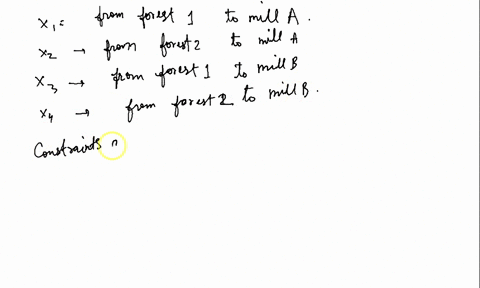 x₁ = from forest 1 to mill A.
x₂ → from forest 2 to mill A
x₃ → from forest 1 to mill B
x₄ → from forest 2 to mill B.
Constraints